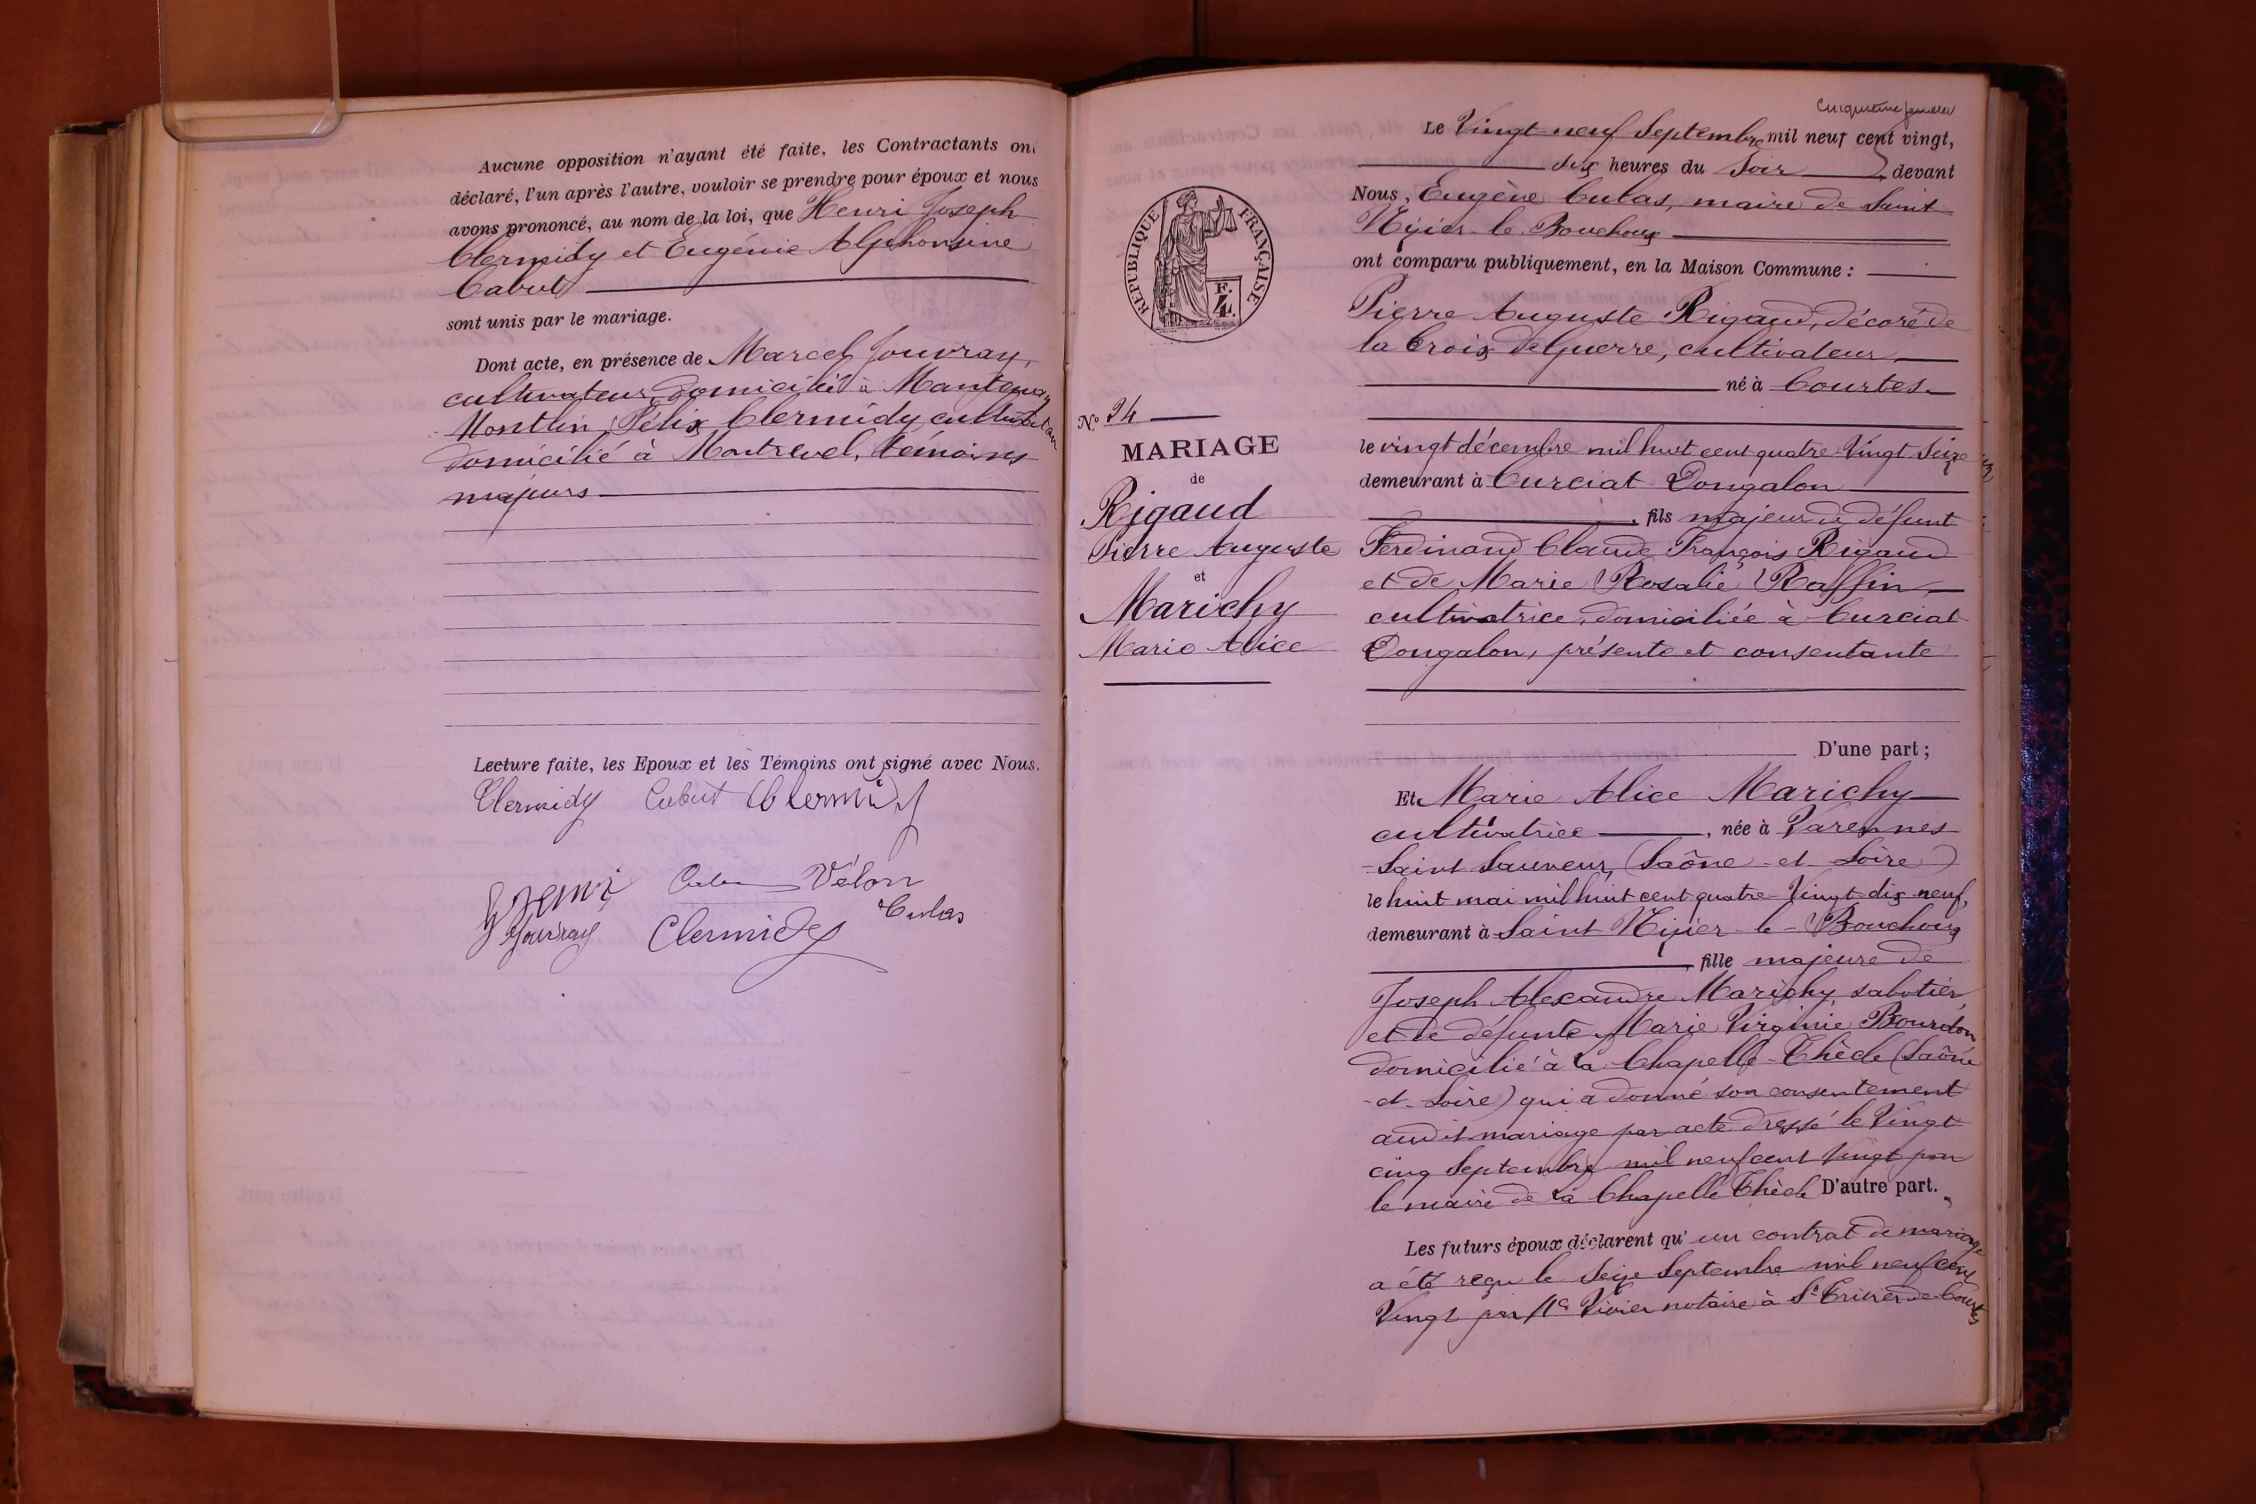 Aucune opposition n'ayant été faite, les Contractants ont
déclaré, l'un après l'autre, vouloir se prendre pour époux et nous
avons prononcé, au nom de la loi, que Henri Joseph
Clermidy et Eugénie Alphonsine
Cabut
sont unis par le mariage.
Dont acte, en présence de Marcel Jouvray,
cultivateur domicilié à Mantenay
Montlin, Félix Clermidy cultivateur
domicilié à Montrevel, témoins
majeurs
Lecture faite, les Epoux et les Témoins ont signé avec Nous.
Clermidy Cabut Clermidy
Vélon
Jouvray Clermidy Culas
Cinquième
Le Vingt neuf Septembre mil neuf cent vingt,
six heures du Soir devant
Nous, Eugène Culas, maire de Saint
Nizier le Bouchoux
ont comparu publiquement, en la Maison Commune :
Pierre Auguste Rigaud, décoré de
la Croix de Guerre, cultivateur
né à Courtes
le vingt décembre mil huit cent quatre Vingt Seize
demeurant à Curciat Dongalon
, fils majeur de défunt
Ferdinand Claude François Rigaud
et de Marie Rosalie Raffin,
cultivatrice, domiciliée à Curciat
Dongalon, présente et consentante
D'une part ;
RÉPUBLIQUE FRANÇAISE
F.
4.
N° 24
MARIAGE
de
Rigaud
Pierre Auguste
et
Marichy
Marie Alice
Et Marie Alice Marichy
cultivatrice, née à Varennes
-Saint Sauveur, (Saône-et-Loire)
le huit mai mil huit cent quatre-Vingt-dix-neuf,
demeurant à Saint Nizier-le-Bouchoux
, fille majeure de
Joseph Alexandre Marichy, sabotier,
et de défunte Marie Virginie Bourdon
domicilié à la Chapelle-Thècle (Saône
-et-Loire) qui a donné son consentement
audit mariage par acte dressé le Vingt
cinq Septembre mil neuf cent Vingt par
le maire de la Chapelle Thècle D'autre part.
Les futurs époux déclarent qu'un contrat de mariage
a été reçu le Seize Septembre mil neuf cent
Vingt par Me Vivier notaire à St Trivier-de-Courtes